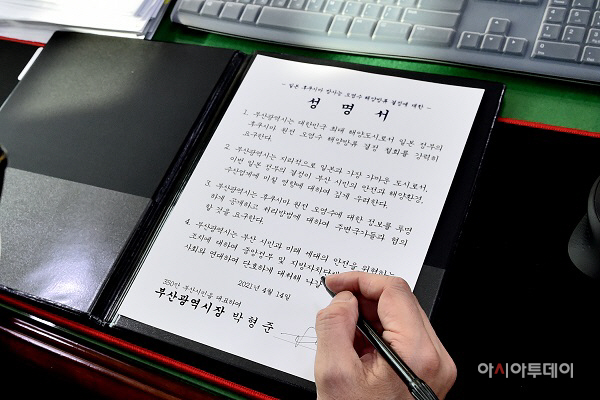 - 일본 후쿠시마 방사능 오염수 해양방류 결정에 대한 -
성 명 서
1. 부산광역시는 대한민국 최대 해양도시로서 일본 정부의
후쿠시마 원전 오염수 해양방류 결정 철회를 강력히
요구한다.
2. 부산광역시는 지리적으로 일본과 가장 가까운 도시로서,
이번 일본 정부의 결정이 부산 시민의 안전과 해양환경,
수산업계에 미칠 영향에 대하여 깊게 우려한다.
3. 부산광역시는 후쿠시마 원전 오염수에 대한 정보를 투명
하게 공개하고 처리방법에 대하여 주변국가들과 협의
할 것을 요구한다.
4. 부산광역시는 부산 시민과 미래 세대의 안전을 위협하는
조치에 대하여 중앙정부 및 지방자치단체
사회와 연대하여 단호하게 대처해 나갈
2021년 4월 14일
350만 부산시민을 대표하여
부산광역시장 박 형 준
아시아투데이